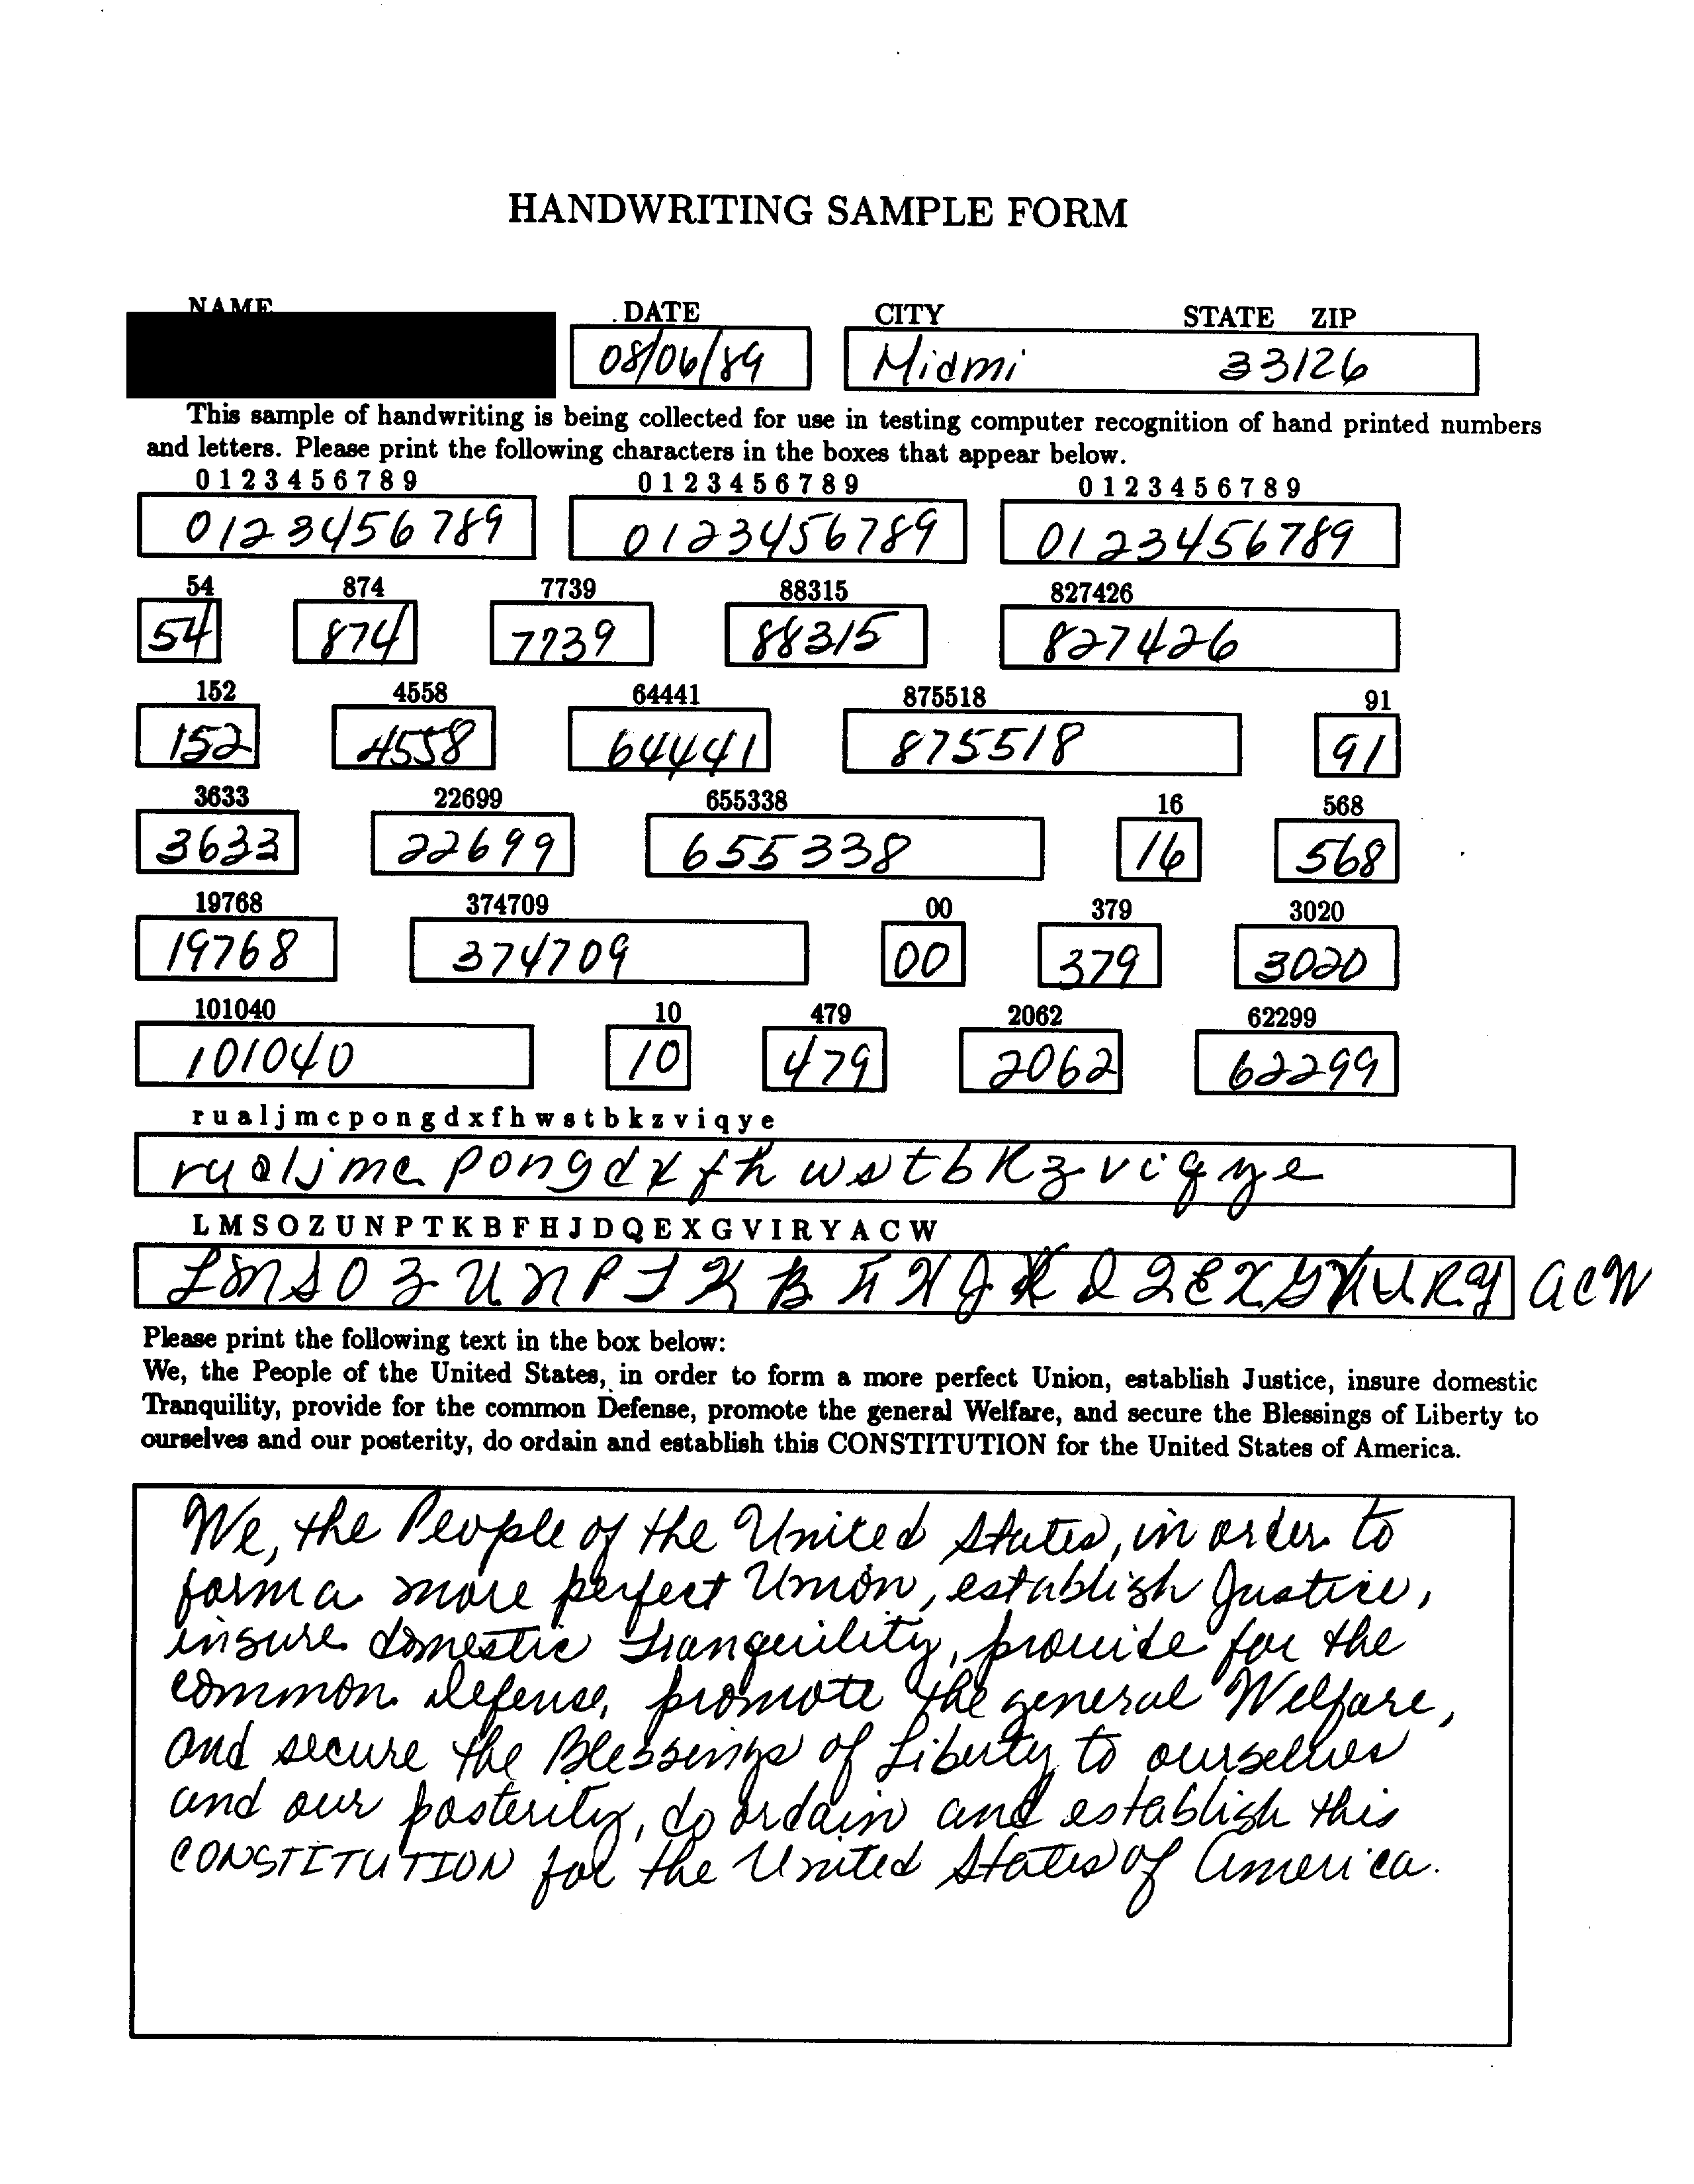 HANDWRITING SAMPLE FORM
NAME DATE CITY STATE ZIP
08/06/89 Miami 33126
This sample of handwriting is being collected for use in testing computer recognition of hand printed numbers
and letters. Please print the following characters in the boxes that appear below.
0 1 2 3 4 5 6 7 8 9 0 1 2 3 4 5 6 7 8 9 0 1 2 3 4 5 6 7 8 9
0123456789 0123456789 0123456789
54 874 7739 88315 827426
54 874 7739 88315 827426
152 4558 64441 875518 91
152 4558 64441 875518 91
3633 22699 655338 16 568
3633 22699 655338 16 568
19768 374709 00 379 3020
19768 374709 00 379 3020
101040 10 479 2062 62299
101040 10 479 2062 62299
r u a l j m c p o n g d x f h w s t b k z v i q y e
r u a l j m c p o n g d x f h w s t b k z v i q y e
L M S O Z U N P T K B F H J D Q E X G V I R Y A C W
L M S O Z U N P T K B F H J D Q E X G V I R Y A C W
Please print the following text in the box below:
We, the People of the United States, in order to form a more perfect Union, establish Justice, insure domestic
Tranquility, provide for the common Defense, promote the general Welfare, and secure the Blessings of Liberty to
ourselves and our posterity, do ordain and establish this CONSTITUTION for the United States of America.
We, the People of the United States, in order to
form a more perfect Union, establish Justice,
insure domestic Tranquility, provide for the
common Defense, promote the general Welfare,
and secure the Blessings of Liberty to ourselves
and our posterity, do ordain and establish this
CONSTITUTION for the United States of America.